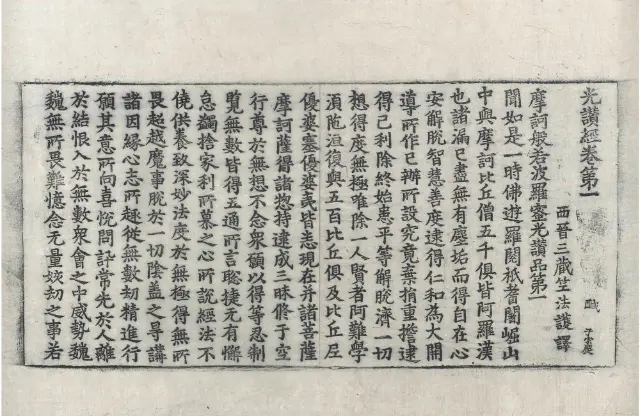 光讚經卷第一
西晉三藏竺法護譯
摩訶般若波羅蜜光讚品第一
聞如是一時佛遊羅閱祇耆闍崛山
中與摩訶比丘僧五千俱皆阿羅漢
也諸漏已盡無有塵垢而得自在心
安解脫智慧善度逮得仁和為大開
導所作已辦所設究竟棄捐重擔逮
得己利除終始患平等解脫濟一切
想得度無極唯除一人賢者阿難學
須陁洹復與五百比丘俱及比丘尼
優婆塞優婆夷皆悉現在并諸菩薩
摩訶薩得諸惣持逮成三昧修于空
行尊於無想不念衆願以得等忍制
覽無數皆得五通所言聡捷无有懈
怠蠲捨家利所慕之心所說經法不
僥供養致深妙法度於無極得無所
畏超越魔事脫於一切陰蓋之㝵講
諸因緣心志所趣從無數劫精進行
願其意所向喜恱問訊常先於人離
於結恨入於無數衆會之中威勢魏
魏無所畏難憶念无量姟劫之事若